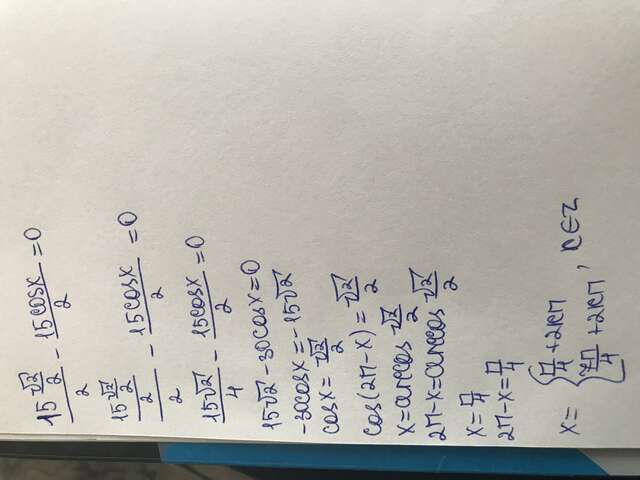 15 √2/2 / 2 - 15cosx / 2 = 0
15 √2/2 / 2 - 15cosx / 2 = 0
15√2 / 4 - 15cosx / 2 = 0
15√2 - 30cosx = 0
-30cosx = -15√2
cosx = √2/2
cos(2π-x) = √2/2
x = arccos √2/2
2π-x = arccos √2/2
x = π/4
2π-x = π/4
x = { π/4 + 2kπ
7π/4 + 2kπ , k∈Z